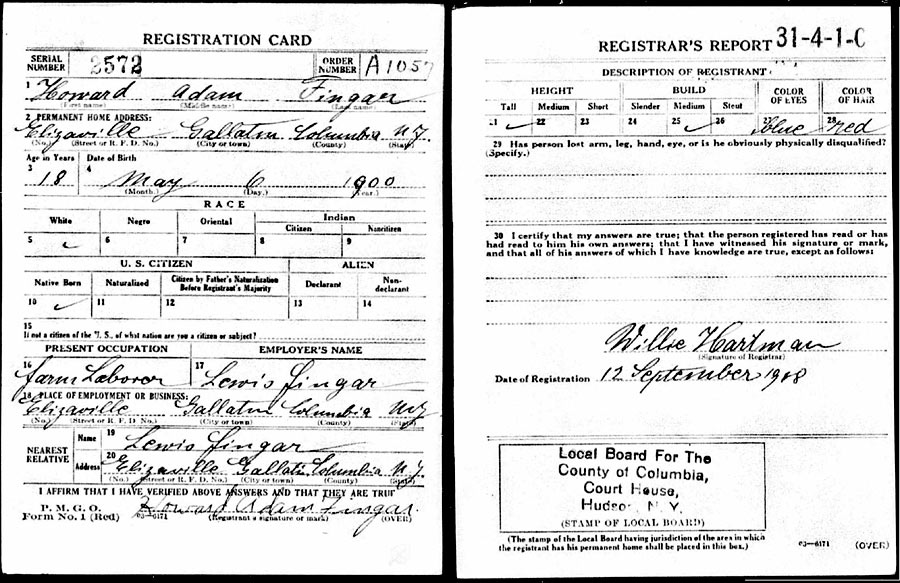 REGISTRATION CARD
SERIAL NUMBER 2572 ORDER NUMBER A1057
1 Howard Adam Fingar
(First name) (Middle name) (Last name)
2 PERMANENT HOME ADDRESS:
Elizaville Gallatin Columbia N.Y.
(No.) (Street or R. F. D. No.) (City or town) (County) (State)
Age in Years Date of Birth
3 18 4 May 6 1900
(Month.) (Day.) (Year.)
RACE
White Negro Oriental Indian
Citizen Noncitizen
5 ✓ 6 7 8 9
U. S. CITIZEN ALIEN
Native Born Naturalized Citizen by Father's Naturalization Before Registrant's Majority Declarant Non-declarant
10 ✓ 11 12 13 14
15
If not a citizen of the U. S., of what nation are you a citizen or subject?
PRESENT OCCUPATION EMPLOYER'S NAME
16 Farm Laborer 17 Lewis Fingar
18 PLACE OF EMPLOYMENT OR BUSINESS:
Elizaville Gallatin Columbia N.Y.
(No.) (Street or R. F. D. No.) (City or town) (County) (State)
NEAREST RELATIVE Name 19 Lewis Fingar
Address 20 Elizaville Gallatin Columbia N.Y.
(No.) (Street or R. F. D. No.) (City or town) (County) (State)
I AFFIRM THAT I HAVE VERIFIED ABOVE ANSWERS AND THAT THEY ARE TRUE
P. M. G. O.
Form No. 1 (Red) 03—6171 Howard Adam Fingar
(Registrant's signature or mark) (OVER)
REGISTRAR'S REPORT 31-4-1-C
DESCRIPTION OF REGISTRANT
HEIGHT BUILD COLOR OF EYES COLOR OF HAIR
Tall Medium Short Slender Medium Stout
21 ✓ 22 23 24 25 ✓ 26 27 blue 28 red
29 Has person lost arm, leg, hand, eye, or is he obviously physically disqualified?
(Specify.)
30 I certify that my answers are true; that the person registered has read or has
had read to him his own answers; that I have witnessed his signature or mark,
and that all of his answers of which I have knowledge are true, except as follows:
Willse Hartman
(Signature of Registrar)
Date of Registration 12 September 1918
Local Board For The
County of Columbia,
Court House,
Hudson, N. Y.
(STAMP OF LOCAL BOARD)
(The stamp of the Local Board having jurisdiction of the area in which
the registrant has his permanent home shall be placed in this box.)
03—6171 (OVER)